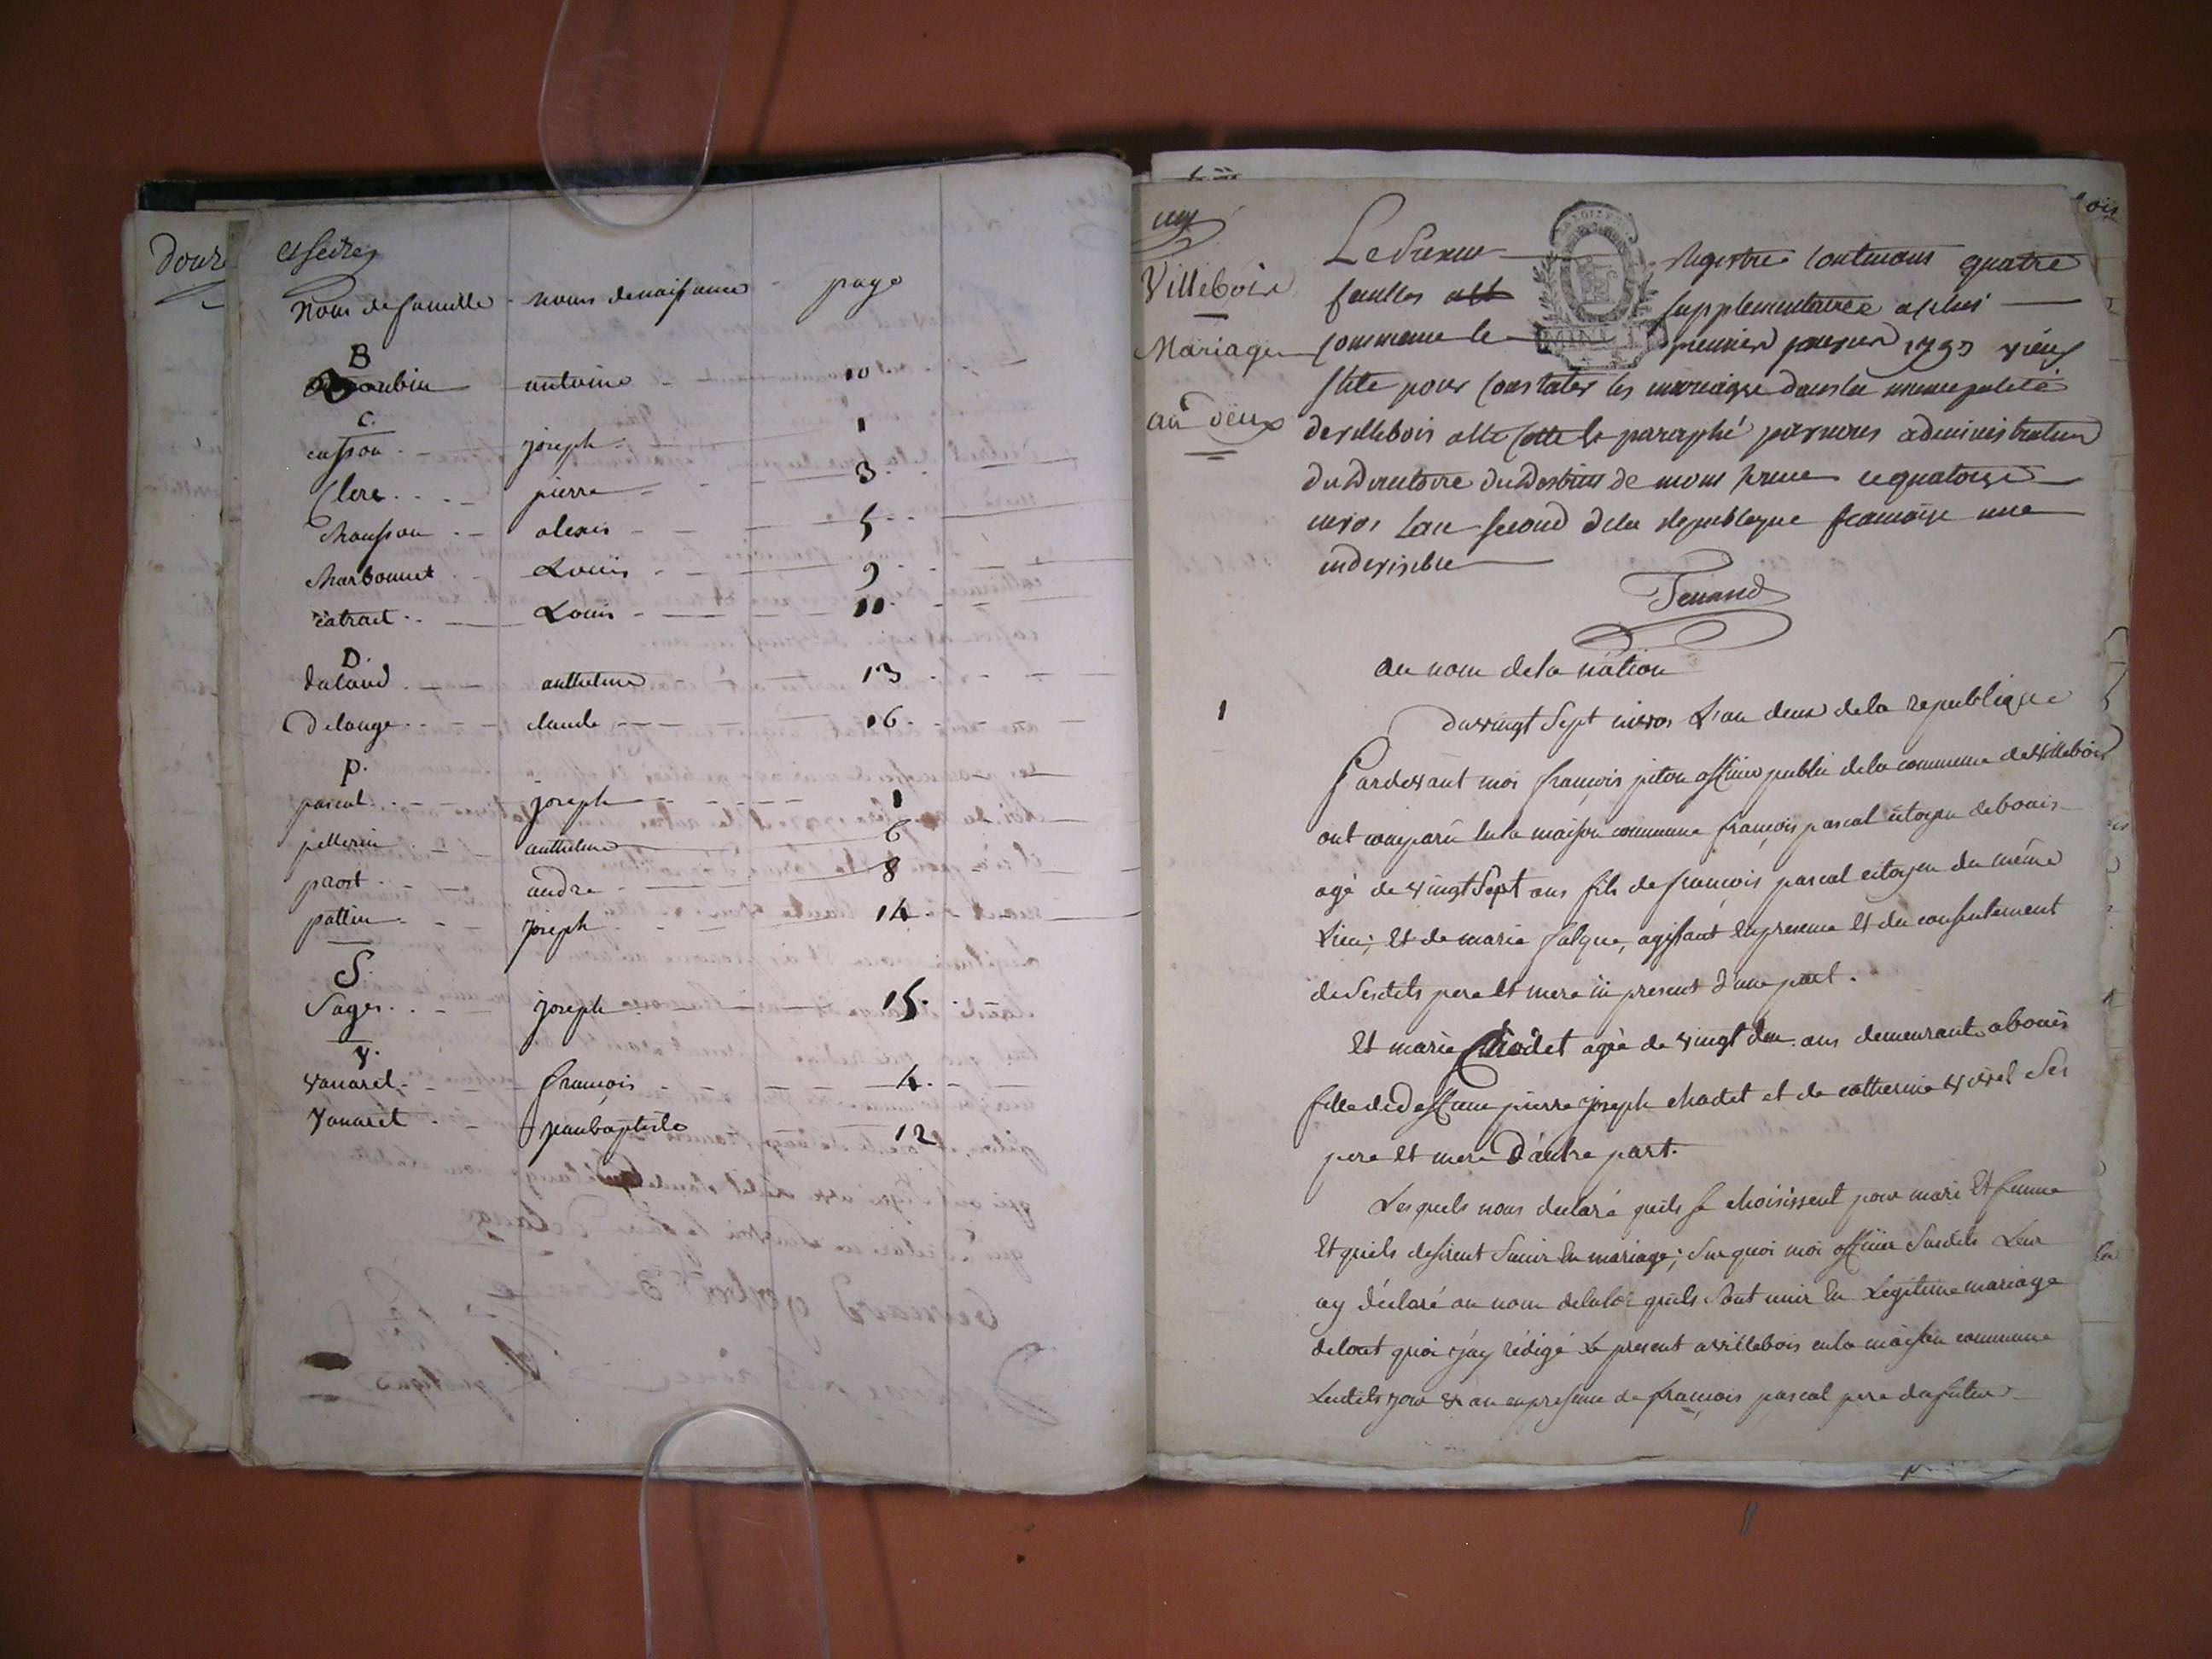 et seize
Nom de famille - noms de naissance - page
B
aubin antoine - 10
C.
cusson - joseph - 1
Clerc - pierre - 3
Chausson - alexis - 5
Charbonnet Louis - 9
catrait - Louis - 11
D.
daland - anthelme - 13
Delange - claude - 16
P.
pascal - joseph - 1
pellerin anthelme 6
prost - andre - 8
pattin - joseph - 14
S.
Sager - joseph - 15
V.
vanarel - françois - 4
Vanaret - jeanbaptiste 12
Douze
un
Villebois
Mariages
an deux
Le Present Registre Contenant quatre
feuilles supplementaires a celui
commencé le premier janvier 1793 vieux
stile pour constater les mariages dans la municipalité
de villebois a été cotté et paraphé par nous administrateur
du Directoire du District de mont ferme ce quatorze
nivos l'an second de la republique françoise une
indivisible
Tenand
au nom de la nation
1
du vingt sept nivos L'an deux de la republique
Pardevant moi françois piton officier public de la commune de villebois
ont comparu en la maison commune françois pascal citoyen de bouis
agé de vingt Sept ans fils de françois pascal citoyen du même
Lieu; et de marie falque, agissant en presence et du consentement
de Sesdits pere et mere ici present d'une part.
Et marie Chodet agée de vingt deux ans demeurante a bouis
fille de deffunt pierre joseph chodet et de catherine vivel Ses
pere et mere D'autre part.
Lesquels nous declaré quils se choisissent pour mari Et femme
Et quils desirent S'unir En mariage; Sur quoi moi officier Susdits Leur
ay déclaré au nom de la loi quils sont unis En Legitime mariage
de tout quoi j'ay rédigé Le present a villebois en la maison commune
Lesdits jour & an en presence de françois pascal pere du futur